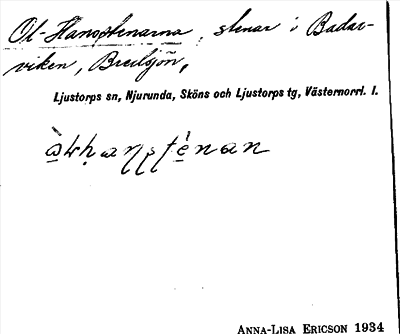 Ol-Hansstenarna, stenar i Badar-
viken, Bredsjön,
Ljustorps sn, Njurunda, Sköns och Ljustorps tg, Västernorrl. l.
ANNA-LISA ERICSON 1934